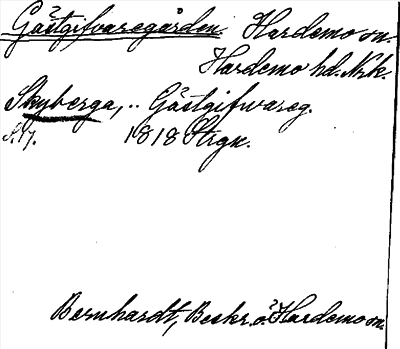 Gästgifvaregården Hardemo sn.
Hardemo hd. Nrk.
Skyberga, .. Gästgifvareg.
S. 17. 1818 Strgn.
Bernhardt, Beskr. ö. Hardemo sn.